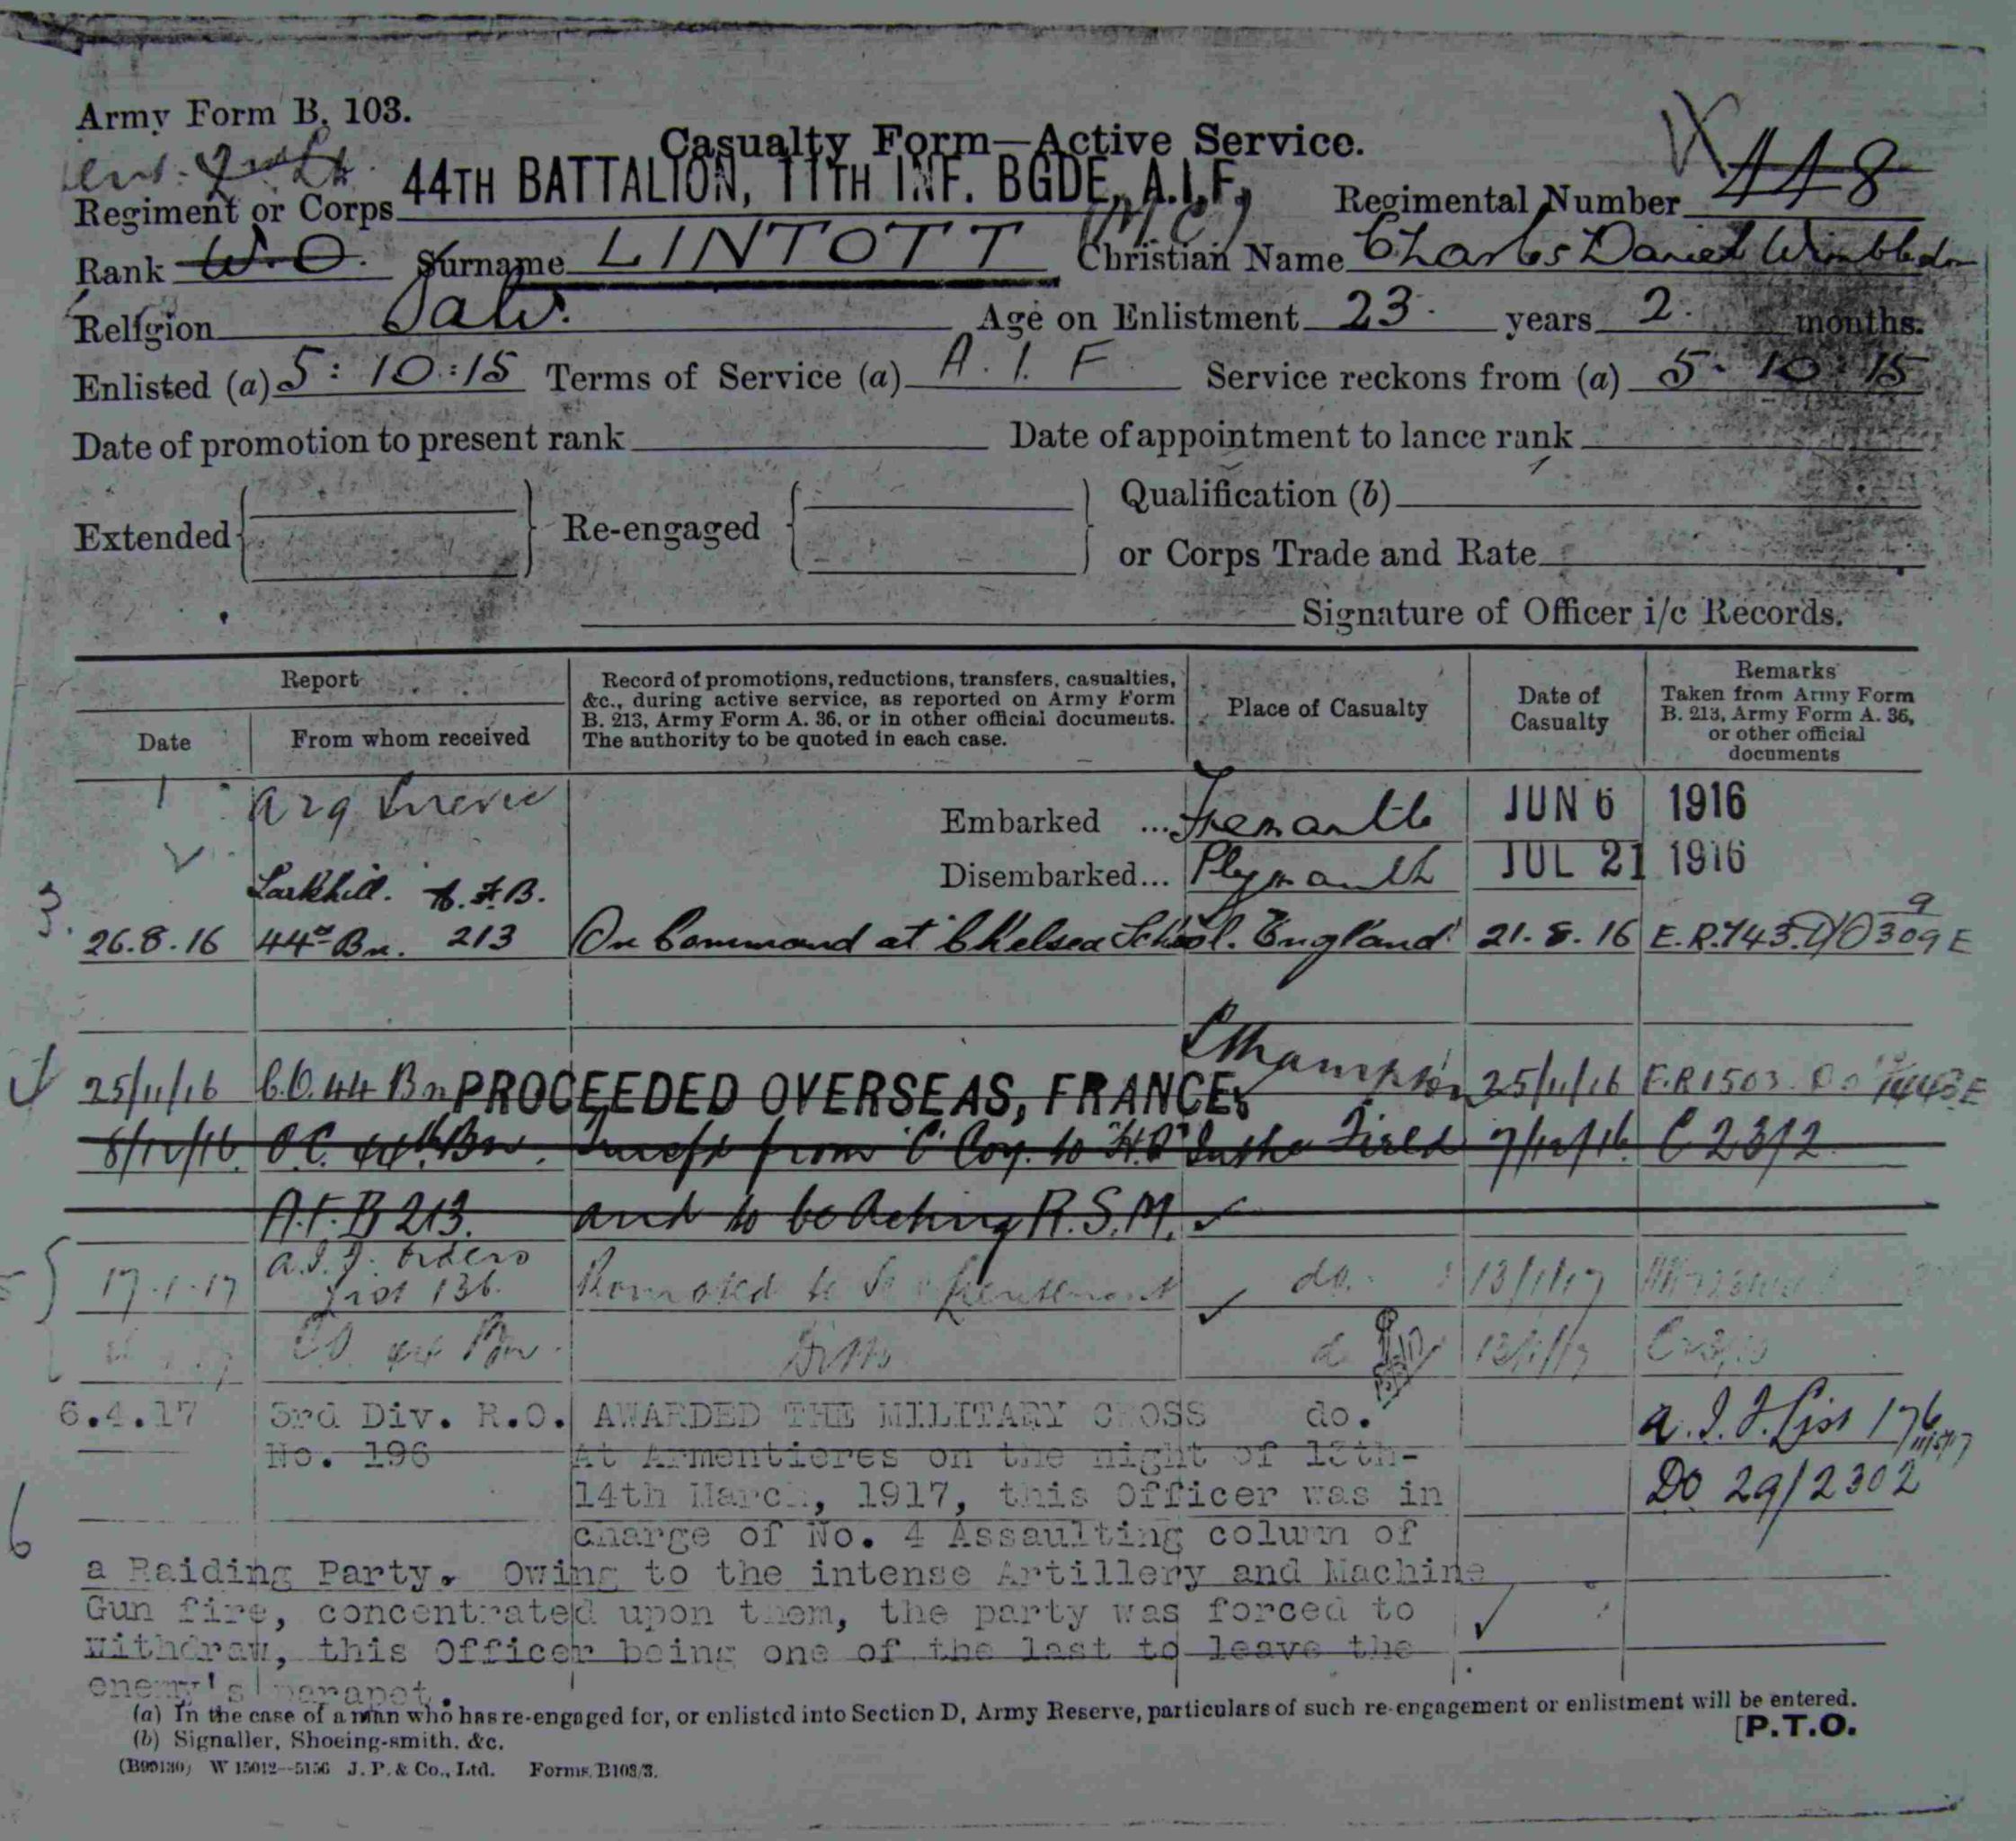 Army Form B. 103.
Casualty Form—Active Service.
Regiment or Corps 44TH BATTALION, 11TH INF. BGDE, A.I.F. Regimental Number 448
(M.C.)
Rank W.O. Surname LINTOTT Christian Name Charles Daniel
Religion Age on Enlistment 23 years 2 months.
Enlisted (a) 5:10:15 Terms of Service (a) A.I.F. Service reckons from (a) 5.10.15
Date of promotion to present rank Date of appointment to lance rank
Extended Re-engaged Qualification (b)
or Corps Trade and Rate
Signature of Officer i/c Records.
Report
Date From whom received
Record of promotions, reductions, transfers, casualties, &c., during active service, as reported on Army Form B. 213, Army Form A. 36, or in other official documents. The authority to be quoted in each case.
Place of Casualty
Date of Casualty
Remarks Taken from Army Form B. 213, Army Form A. 36, or other official documents
Embarked ... Fremantle JUN 6 1916
Disembarked... Plymouth JUL 21 1916
Larkhill. A.F.B.
26.8.16 44th Bn. 213 On Command at Chelsea School. England 21.8.16 E.R.743. DO 309E
25/11/16 C.O. 44 Bn PROCEEDED OVERSEAS, FRANCE. SHampton 25/11/16 E.R 1503
8/12/16. O.C. 44th Bn. Transf from "C" Coy. to H.Q In the Field 7/12/16 C 23/2
A.F. B 213. and to be Acting R.S.M.
17.1.17 A.I.F. Orders List 136. Promoted to 2nd Lieutenant do. 13/1/17
C.O. 44 Bn. Ditto 13/1/17
6.4.17 3rd Div. R.O. AWARDED THE MILITARY CROSS do. A.I.F. List 176
No. 196 At Armentieres on the night of 13th-
14th March, 1917, this Officer was in DO 29/2302
charge of No. 4 Assaulting column of
a Raiding Party. Owing to the intense Artillery and Machine
Gun fire, concentrated upon them, the party was forced to
withdraw, this Officer being one of the last to leave the
enemy's parapet.
(a) In the case of a man who has re-engaged for, or enlisted into Section D, Army Reserve, particulars of such re-engagement or enlistment will be entered.
(b) Signaller, Shoeing-smith, &c.
[P.T.O.
W 15012—5156 J. P. & Co., Ltd. Forms. B103/3.